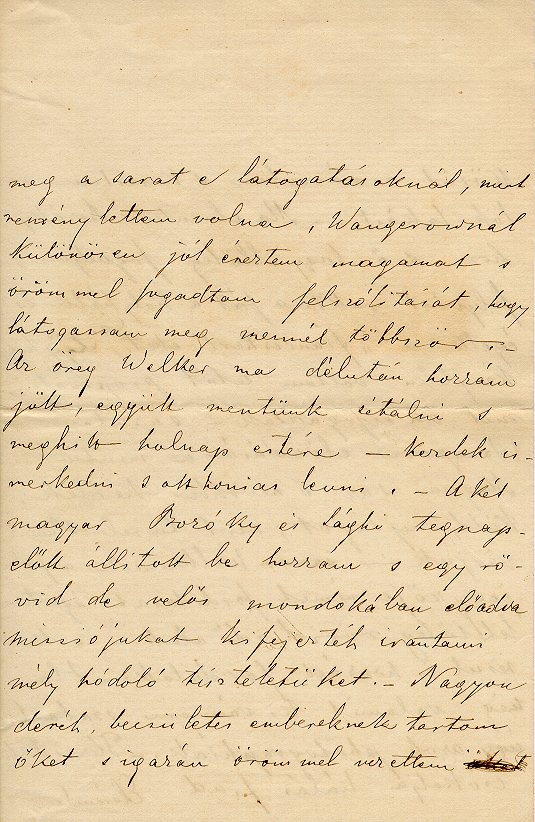 meg a sarat e látogatásoknál, mint
reményllettem volna, Wangerownál
különösen jól éreztem magamat s
örömmel fogadtam felszólítását, hogy
látogassam meg mennél többször. –
Az öreg Welker ma délután hozzám
jött, együtt mentünk sétálni s
meghitt holnap estére – Kezdek is-
merkedni s otthonias lenni. – A két
magyar Boróky és Sághi tegnap-
előtt állított be hozzám s egy rö-
vid de velős mondókában előadva
missiójukat kifejezték irántami
mély hódoló tiszteletüket. – Nagyon
derék, becsületes embereknek tartom
őket s igazán örömmel vezettem